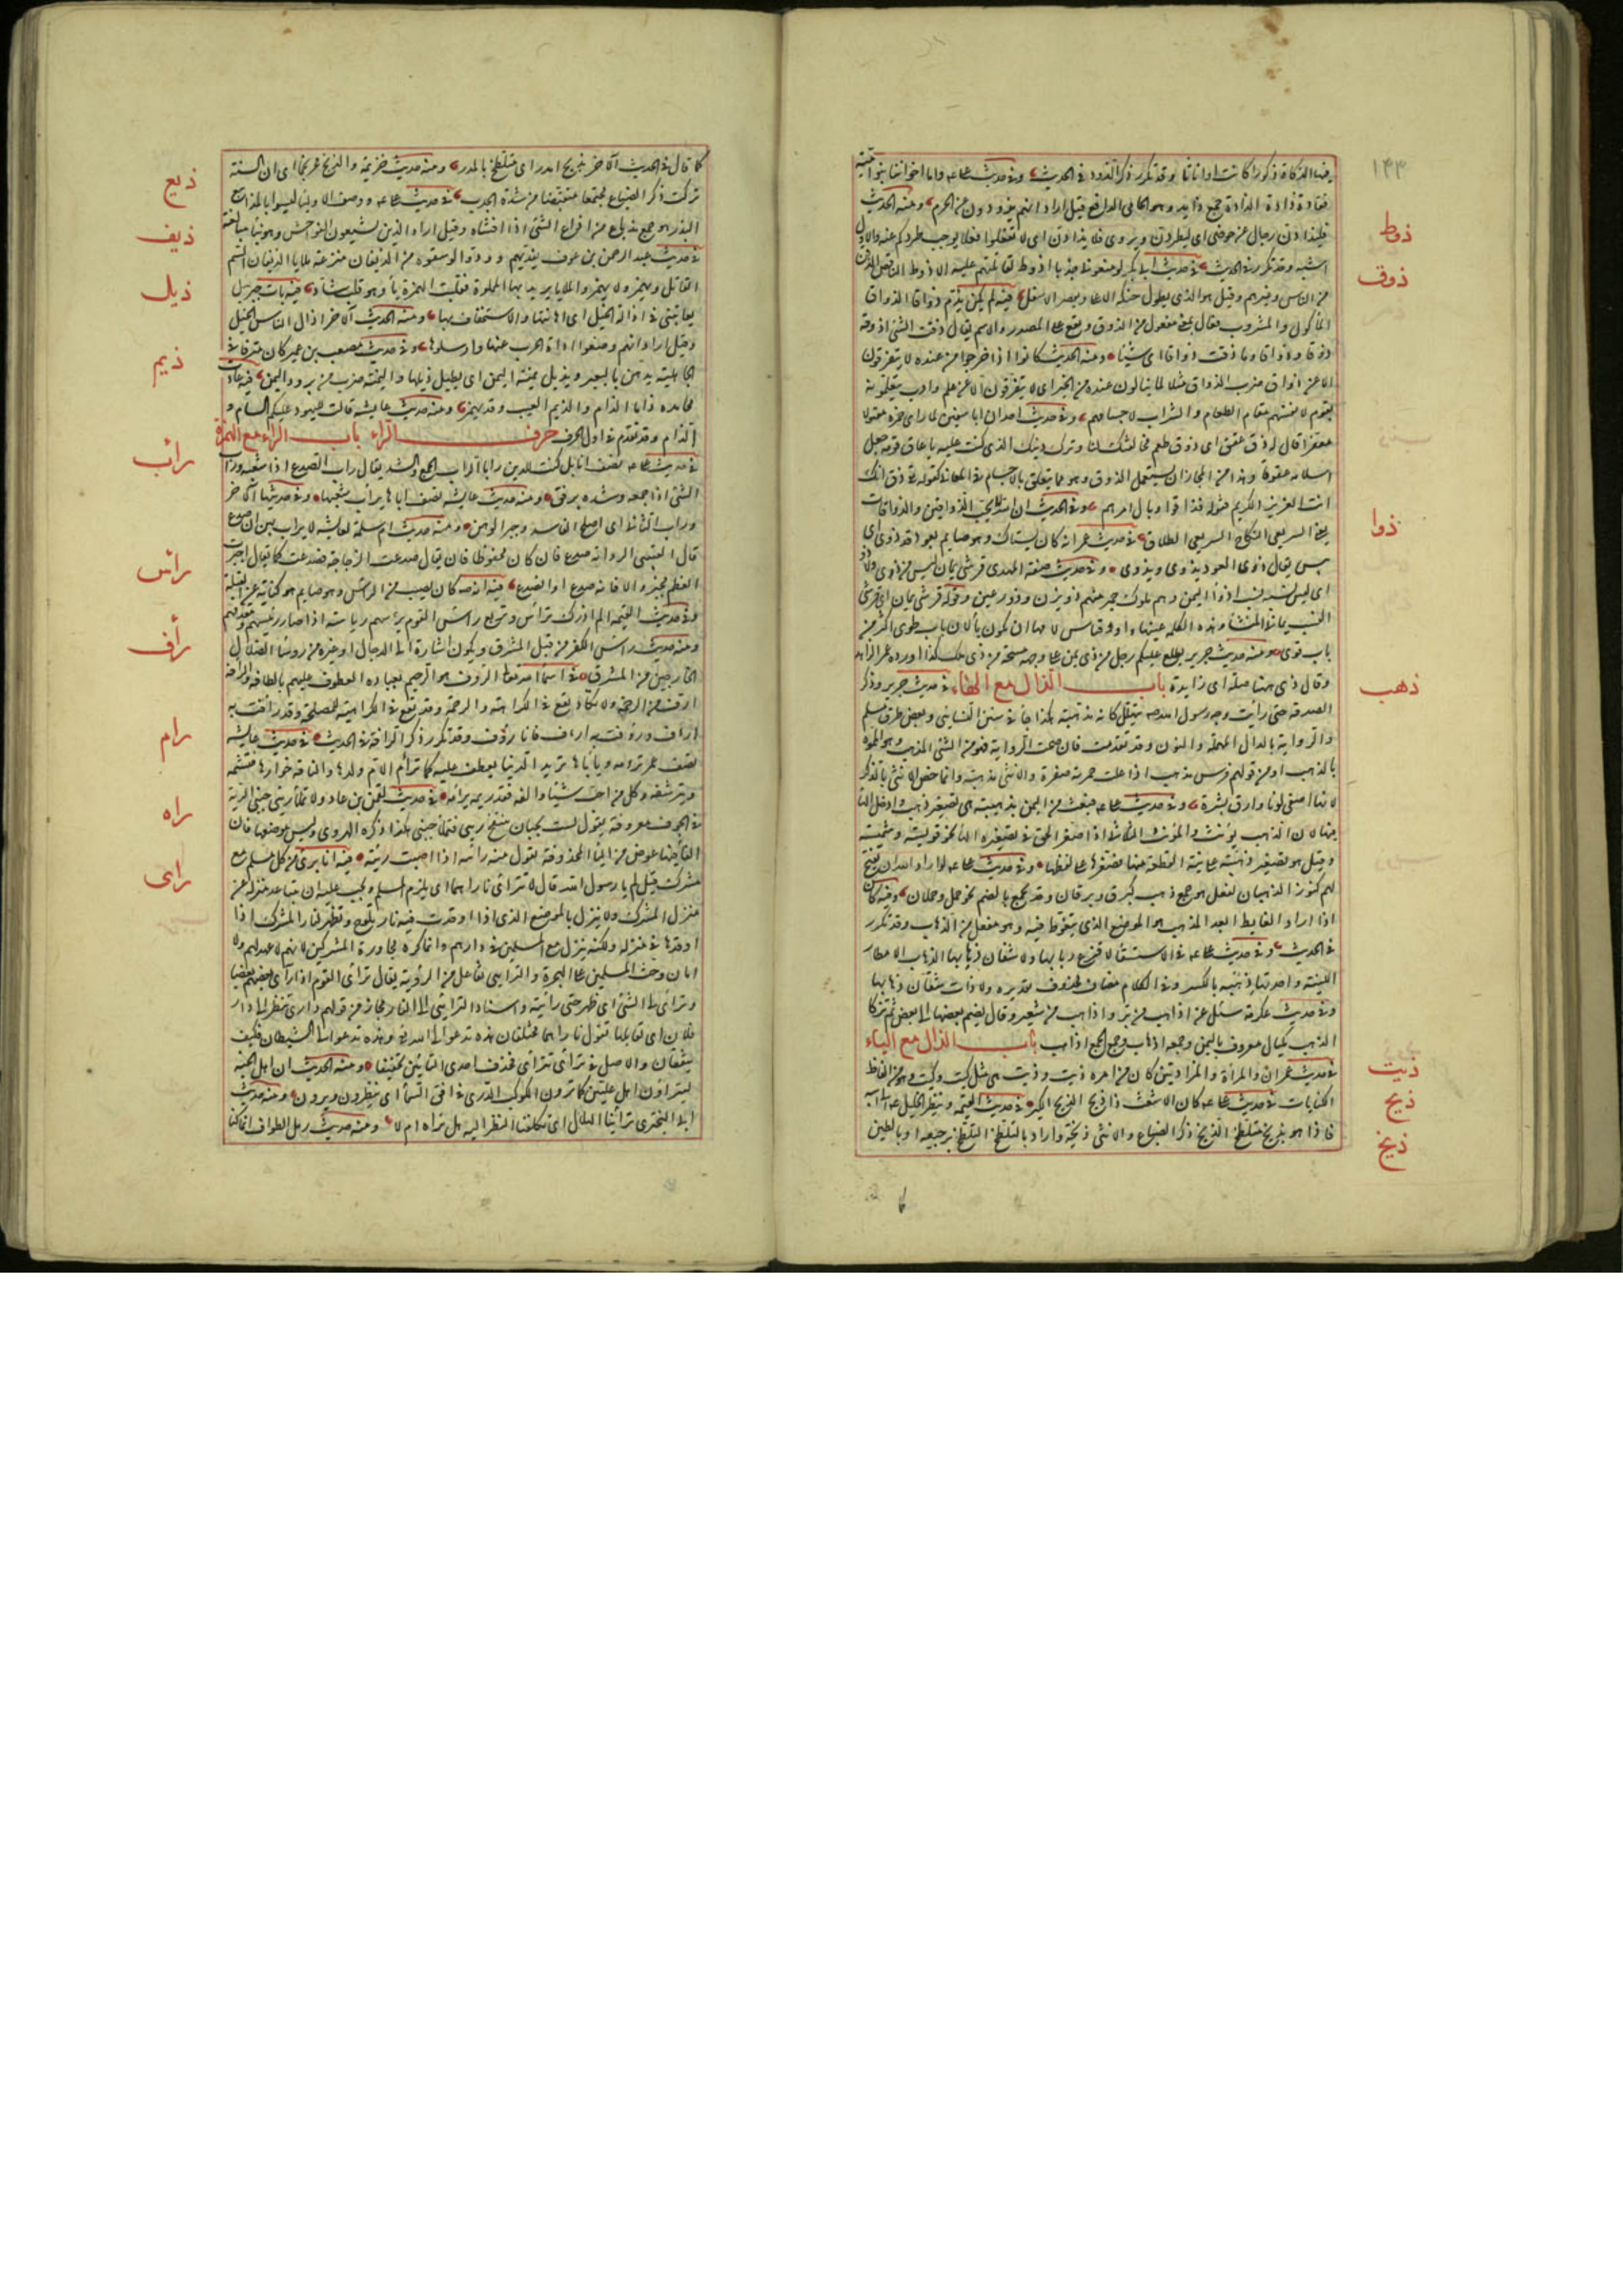 ١٤٣
ذوط
ذوق
ذوا
ذهب
ذيت
ذيح
ذيخ
وقد تكرر ذكر الذود في الحديث وفي حديث علي واما اخواننا بنو امية
فقادة ذادة الذادة جمع ذايد وهو الحامي الدافع قيل اراد انهم يذودون عن الحرم ومنه الحديث
فليذادن رجال عن حوضي اي ليطردن ويروى فلا تذادن اي لا تفعلوا فعلا يوجب طردكم عنه والاول
اشبه وقد تكرر في الحديث في حديث ابي بكر لو منعوني جديا اذوط لقاتلتهم عليه الاذوط الناقص الذقن
من الناس وغيرهم وقيل هو الذي يطول حنكه الاعلى ويقصر الاسفل فيه لم يكن يذم ذواقا الذواق
المأكول والمشروب فعال بمعنى مفعول من الذوق ويقع على المصدر والاسم يقال ذقت الشئ اذوقه
ذوقا وذواقا وما ذقت ذواقا اي شيئا ومنه الحديث كانوا اذا خرجوا من عنده لا يتفرقون
الا عن ذواق ضرب الذواق مثلا لما ينالون عنده من الخير اي لا يتفرقون الا عن علم وادب يتعلمونه
يقوم لانفسهم مقام الطعام والشراب لاجسامهم وفي حديث احد ان ابا سفين لما راى حمزة مقتولا
معفرا قال له ذق عقق اي ذق طعم مخالفتك لنا وتركك دينك الذي كنت عليه يا عاق قومه جعل
اسلامه عقوقا وهذا من المجاز ان يستعمل الذوق وهو مما يتعلق بالاجسام في المعاني كقوله تعالى ذق انك
انت العزيز الكريم وقوله فذاقوا وبال امرهم وفي الحديث ان الله لا يحب الذواقين والذواقات
يعني السريعي النكاح السريعي الطلاق في حديث عمر انه كان يستاك وهو صايم بعود قد ذوى اي
يبس يقال ذوى العود يذوي ويذوى وفي حديث صفة المهدي قرشي يمان ليس من ذي ولا ذو
اي ليس نسبه نسب اذواء اليمن وهم ملوك حمير منهم ذو يزن وذو رعين وقوله قرشي يمان اي قرشي
النسب يماني المنشأ وهذه الكلمة عينها واو وقياس لامها ان تكون ياء لان باب طوى اكثر من
باب قوي ومنه حديث جرير يطلع عليكم رجل من ذي يمن على وجهه مسحة من ذي ملك كذا اورده عمر الزاهد
وقال ذي هنا صلة اي زايدة باب الذال مع الهاء في حديث جرير وذكر
الصدقة حتى رأيت وجه رسول الله يتهلل كانه مذهبة هكذا جاء في سنن النسايي وبعض طرق مسلم
والرواية بالدال المهملة والنون وقد تقدمت فان صحت الرواية فهو من الشئ المذهب وهو المموه
بالذهب او من قولهم فرس مذهب اذا علت حمرته صفرة والانثى مذهبة وانما خص الانثى بالذكر
لانها اصفى لونا وارق بشرة وفي حديث علي فبعث من اليمن بذهيبة هي تصغير ذهب وادخل الهاء
فيها لان الذهب يؤنث والمؤنث الثلاثي اذا صغر الحق في تصغيره الهاء نحو قويسة وشميسة
وقيل هو تصغير ذهبة على نية القطعة منها فصغرها على لفظها وفي حديث علي لو اراد الله ان يفتح
لهم كنوز الذهبان لفعل هو جمع ذهب كبرق وبرقان وقد يجمع بالضم نحو حمل وحملان وفيه كان
اذا اراد الغايط ابعد المذهب هو الموضع الذي يتغوط فيه وهو مفعل من الذهاب وقد تكرر
في الحديث وفي حديث علي في الاستسقاء لا قزع ربابها ولا شفان ذهابها الذهاب الامطار
اللينة واحدتها ذهبة بالكسر وفي الكلام مضاف محذوف تقديره ولا ذات شفان ذهابها
وفي حديث عكرمة سئل عن اذاهب من بر واذاهب من شعير وقال يضم بعضها الى بعض ثم تزكى
الذهب مكيال معروف باليمن وجمعه اذهاب وجمع الجمع اذاهب باب الذال مع الياء
في حديث عمران والمرأة والمزادتين كان من امره ذيت وذيت هي مثل كيت وكيت وهو من الفاظ
الكنايات في حديث علي كان الاشعث ذا ذيح الذيح الكبر في حديث القيمة وينظر الخليل الى ابيه
فاذا هو بذيخ متلطخ الذيخ ذكر الضباع والانثى ذيخة واراد بالتلطخ التلطخ برجيعه او بالطين
كما
ذيع
ذيف
ذيل
ذيم
رأب
رأس
رأف
رام
راه
راى
كما قال في الحديث الآخر بذيخ امدر اي متلطخ بالمدر ومنه حديث خزيمة والذيخ محرنجما اي ان السنة
تركت ذكر الضباع مجتمعا منقبضا من شدة الجدب في حديث علي ووصف الاولياء ليسوا بالمذاييع
البذر هو جمع مذياع من اذاع الشئ اذا افشاه وقيل اراد الذين يشيعون الفواحش وهو بناء مبالغة
في حديث عبد الرحمن بن عوف يفديهم وودوا لو سقوه من الذيفان مترعة ملايا الذيفان السم
القاتل ويهمز ولا يهمز والملايا يريد بها المملوءة فقلبت الهمزة ياء وهو قلب شاذ فيه بات جبريل
يعاتبني في اذالة الخيل اي اهانتها والاستخفاف بها ومنه الحديث الآخر اذال الناس الخيل
وقيل اراد انهم وضعوا اداة الحرب عنها وارسلوها وفي حديث مصعب بن عمير كان مترفا في
الجاهلية يدهن بالعبير ويذيل يمنة اليمن اي يطيل ذيلها واليمنة ضرب من برود اليمن فيه عادت
محامده ذاما الذام والذيم العيب وقد يهمز ومنه حديث عايشة قالت لليهود عليكم السام و
الذام وقد تقدم في اول الحرف حرف الراء باب الراء مع الهمزة
في حديث علي يصف ابا بكر كنت للدين رابا الراب الجمع والشد يقال راب الصدع اذا شعبه وراب
الشئ اذا جمعه وشده برفق ومنه حديث عايشة تصف اباها يرأب شعبها وفي حديثها الآخر
وراب الثأي اي اصلح الفاسد وجبر الوهن ومنه حديث ام سلمة لعايشة لا يراب بهن ان صدع
قال القتيبي الرواية صدع فان كان محفوظا فانه يقال صدعت الزجاجة فصدعت كما يقال جبرت
العظم فجبر والا فانه صدع او انصدع فيه انه كان يصيب من الراس وهو صايم هو كناية عن القبلة
وفي حديث القيمة الم اذرك ترأس وتربع راس القوم يرئسهم رياسة اذا صار رئيسهم ومقدمهم
ومنه حديث راس الكفر من قبل المشرق ويكون اشارة الى الدجال او غيره من رؤساء الضلال
الخارجين من المشرق في اسماء الله تعالى الرؤف هو الرحيم بعباده العطوف عليهم بالطافه والرافة
ارق من الرحمة ولا تكاد تقع في الكراهة والرحمة قد تقع في الكراهة للمصلحة وقد رافت به
اراف ورؤفت به اراف فانا رؤف وقد تكرر ذكر الرافة في الحديث في حديث عايشة
تصف عمر ترامه ويأباها تريد الدنيا تعطف عليه كما ترأم الام ولدها والناقة حوارها فتشمه
وترشفه وكل من احب شيئا والفه فقد رئمه يرأمه في حديث لقمن بن عاد ولا تملأ رئتي جنبي الرئة
في الجوف معروفة يقول لست بجبان تنتفخ رئتي فتملأ جنبي هكذا ذكره الهروي وليس موضعها فان
الهاء فيها عوض من الياء المحذوفة تقول منه رأيته اذا اصبت رئته فيه انا برئ من كل مسلم مع
مشرك قيل لم يا رسول الله قال لا تراءى ناراهما اي يلزم المسلم ويجب عليه ان يتباعد منزله عن
منزل المشرك ولا ينزل بالموضع الذي اذا اوقدت فيه نار تلوح وتظهر لنار المشرك اذا
اوقدها في منزله ولكنه ينزل مع المسلمين في دارهم وانما كره مجاورة المشركين لانهم لا عهد لهم ولا
امان وحث المسلمين على الهجرة والترايي تفاعل من الرؤية يقال تراءى القوم اذا رأى بعضهم بعضا
وتراءى لي الشئ اي ظهر حتى رأيته واسناد الترايي الى النار مجاز من قولهم داري تنظر الى دار
فلان اي تقابلها تقول ناراهما مختلفتان هذه تدعو الى الله تعالى وهذه تدعو الى الشيطان فكيف
يتفقان والاصل في تراءى تتراءى فحذف احدى التاءين تخفيفا ومنه الحديث ان اهل الجنة
ليتراؤن اهل عليين كما ترون الكوكب الدري في افق السماء اي ينظرون ويرون ومنه حديث
ابي البختري تراءينا الهلال اي تكلفنا النظر اليه هل نراه ام لا ومنه حديث رمل الطواف انما كنا